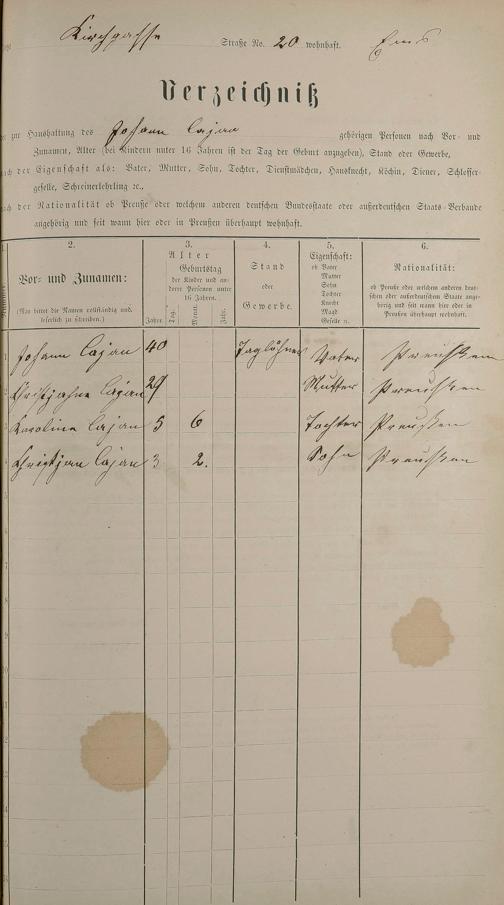 Kirchgasse Straße No. 20 wohnhaft. Ems
Verzeichniß
der zur Haushaltung des Johann Cajan gehörigen Personen nach Vor- und
Zunamen, Alter (bei Kindern unter 16 Jahren ist der Tag der Geburt anzugeben), Stand oder Gewerbe,
nach der Eigenschaft als: Vater, Mutter, Sohn, Tochter, Dienstmädchen, Hausknecht, Köchin, Diener, Schlosser-
geselle, Schreinerlehrling ꝛc.,
nach der Nationalität ob Preuße oder welchem anderen deutschen Bundesstaate oder außerdeutschen Staats-Verbande
angehörig und seit wann hier oder in Preußen überhaupt wohnhaft.
2. 3. 4. 5. 6.
Vor- und Zunamen:
(Man bittet die Namen vollständig und
leserlich zu schreiben.)
Alter
Geburtstag
der Kinder und an-
derer Personen unter
16 Jahren.
Jahre. Tag. Monat. Jahr.
Stand
oder
Gewerbe.
Eigenschaft:
ob Vater
Mutter
Sohn
Tochter
Knecht
Magd
Geselle ꝛc.
Nationalität:
ob Preuße oder welchem anderen deut-
schen oder außerdeutschen Staate ange-
hörig und seit wann hier oder in
Preußen überhaupt wohnhaft.
1 Johann Cajan 40 Taglöhner Vater Preussen
2 Christjahne Cajan 29 Mutter Preussen
Karoline Cajan 5 6 Tochter Preussen
Christjan Cajan 3 2. Sohn Preussen